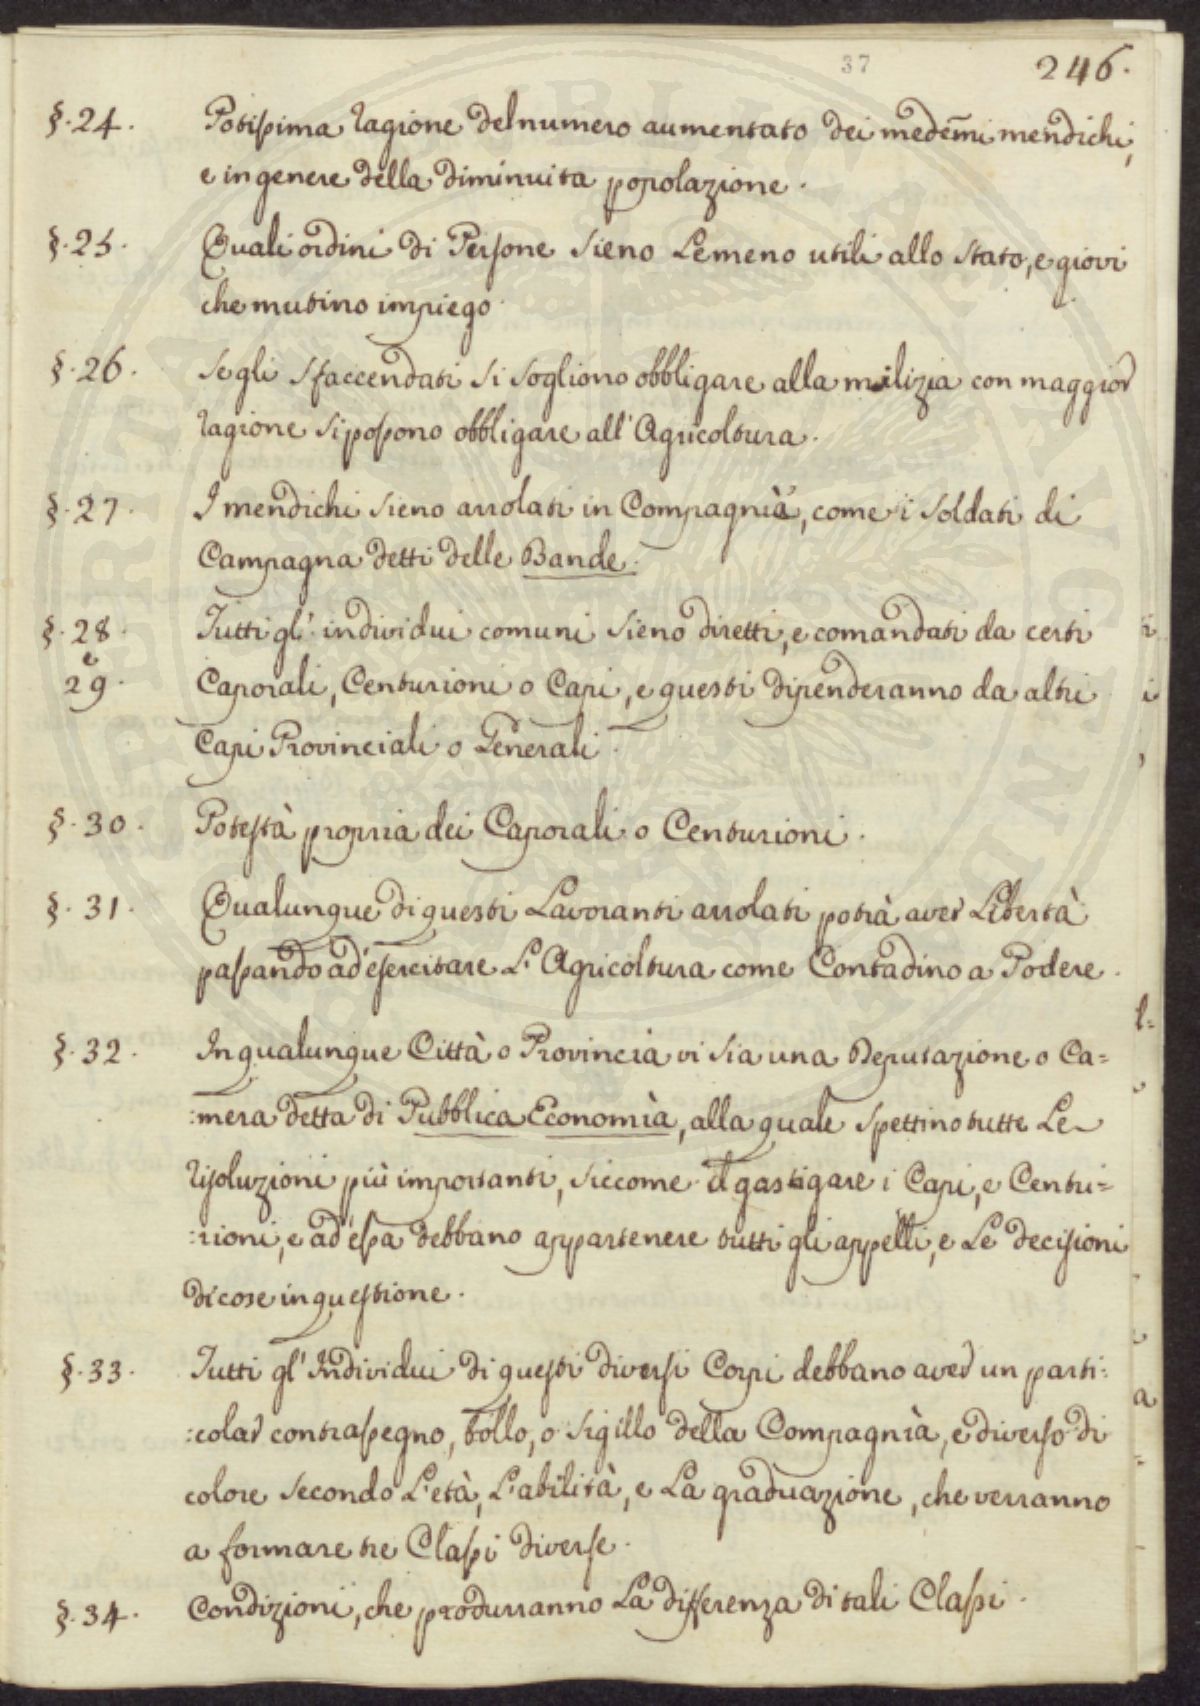 37
246.
§. 24. Potissima ragione del numero aumentato dei medēmi mendichi,
e in genere della diminuita popolazione.
§. 25. Quali ordini di Persone sieno Le meno utili allo Stato, e giovi
che mutino impiego.
§. 26. Se gli sfaccendati si sogliono obbligare alla milizia con maggior
ragione si possono obbligare all' Agricoltura.
§. 27. I mendichi sieno arrolati in Compagnià, come i Soldati di
Campagna detti delle Bande.
§. 28. Tutti gl' individui comuni sieno diretti, e comandati da certi
e
29. Caporali, Centurioni o Capi, e questi dipenderanno da altri
Capi Provinciali o Generali.
§. 30. Potestà propria dei Caporali o Centurioni.
§. 31. Qualunque di questi Lavoranti arrolati potrà aver Libertà
passando ad esercitare L' Agricoltura come Contadino a Podere.
§. 32. In qualunque Città o Provincia vi sia una Deputazione o Ca=
:mera detta di Pubblica Economìa, alla quale spettino tutte Le
risoluzioni più importanti, siccome il gastigare i Capi, e Centu=
:rioni, e ad essa debbano appartenere tutti gli appelli, e Le decisioni
di cose in questione.
§. 33. Tutti gl' Individui di questi diversi Corpi debbano aver un parti:
:colar contrassegno, bollo, o sigillo della Compagnìa, e diverso di
colore secondo L' età, L' abilità, e La graduazione, che verranno
a formare tre Classi diverse.
§. 34. Condizioni, che produrranno La differenza di tali Classi.